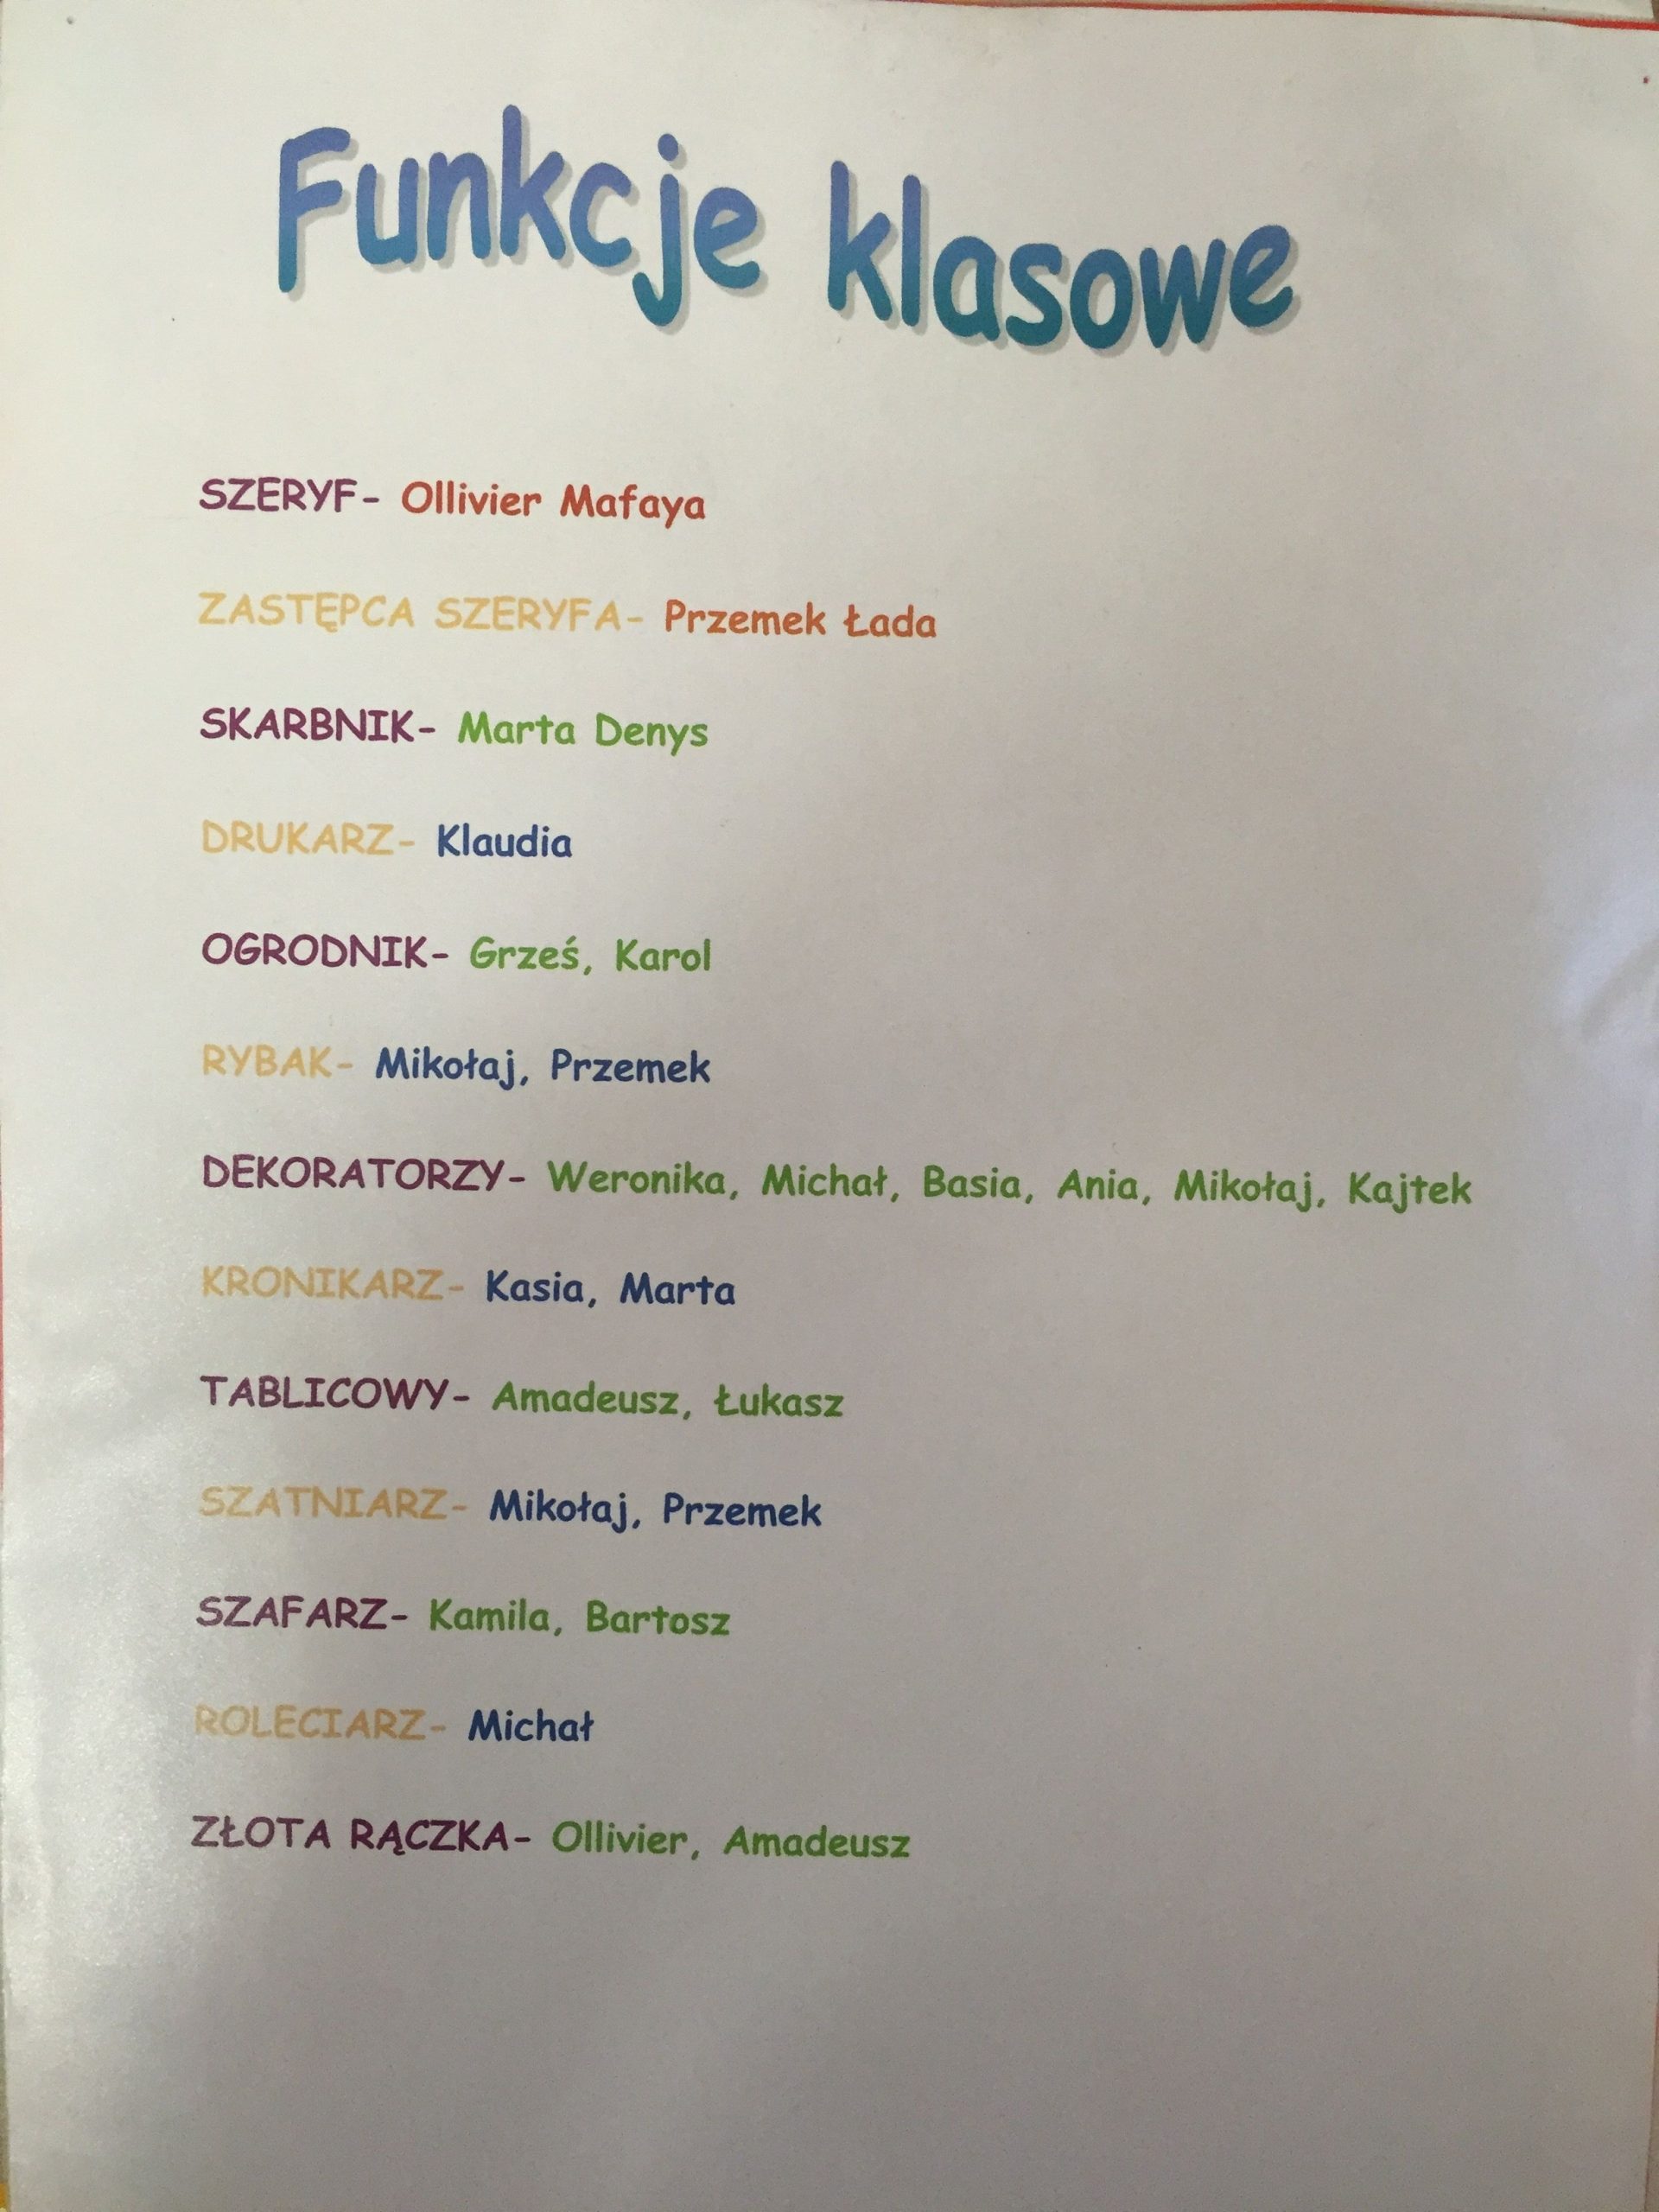 Funkcje klasowe
SZERYF- Ollivier Mafaya
ZASTĘPCA SZERYFA- Przemek Łada
SKARBNIK- Marta Denys
DRUKARZ- Klaudia
OGRODNIK- Grześ, Karol
RYBAK- Mikołaj, Przemek
DEKORATORZY- Weronika, Michał, Basia, Ania, Mikołaj, Kajtek
KRONIKARZ- Kasia, Marta
TABLICOWY- Amadeusz, Łukasz
SZATNIARZ- Mikołaj, Przemek
SZAFARZ- Kamila, Bartosz
ROLECIARZ- Michał
ZŁOTA RĄCZKA- Ollivier, Amadeusz